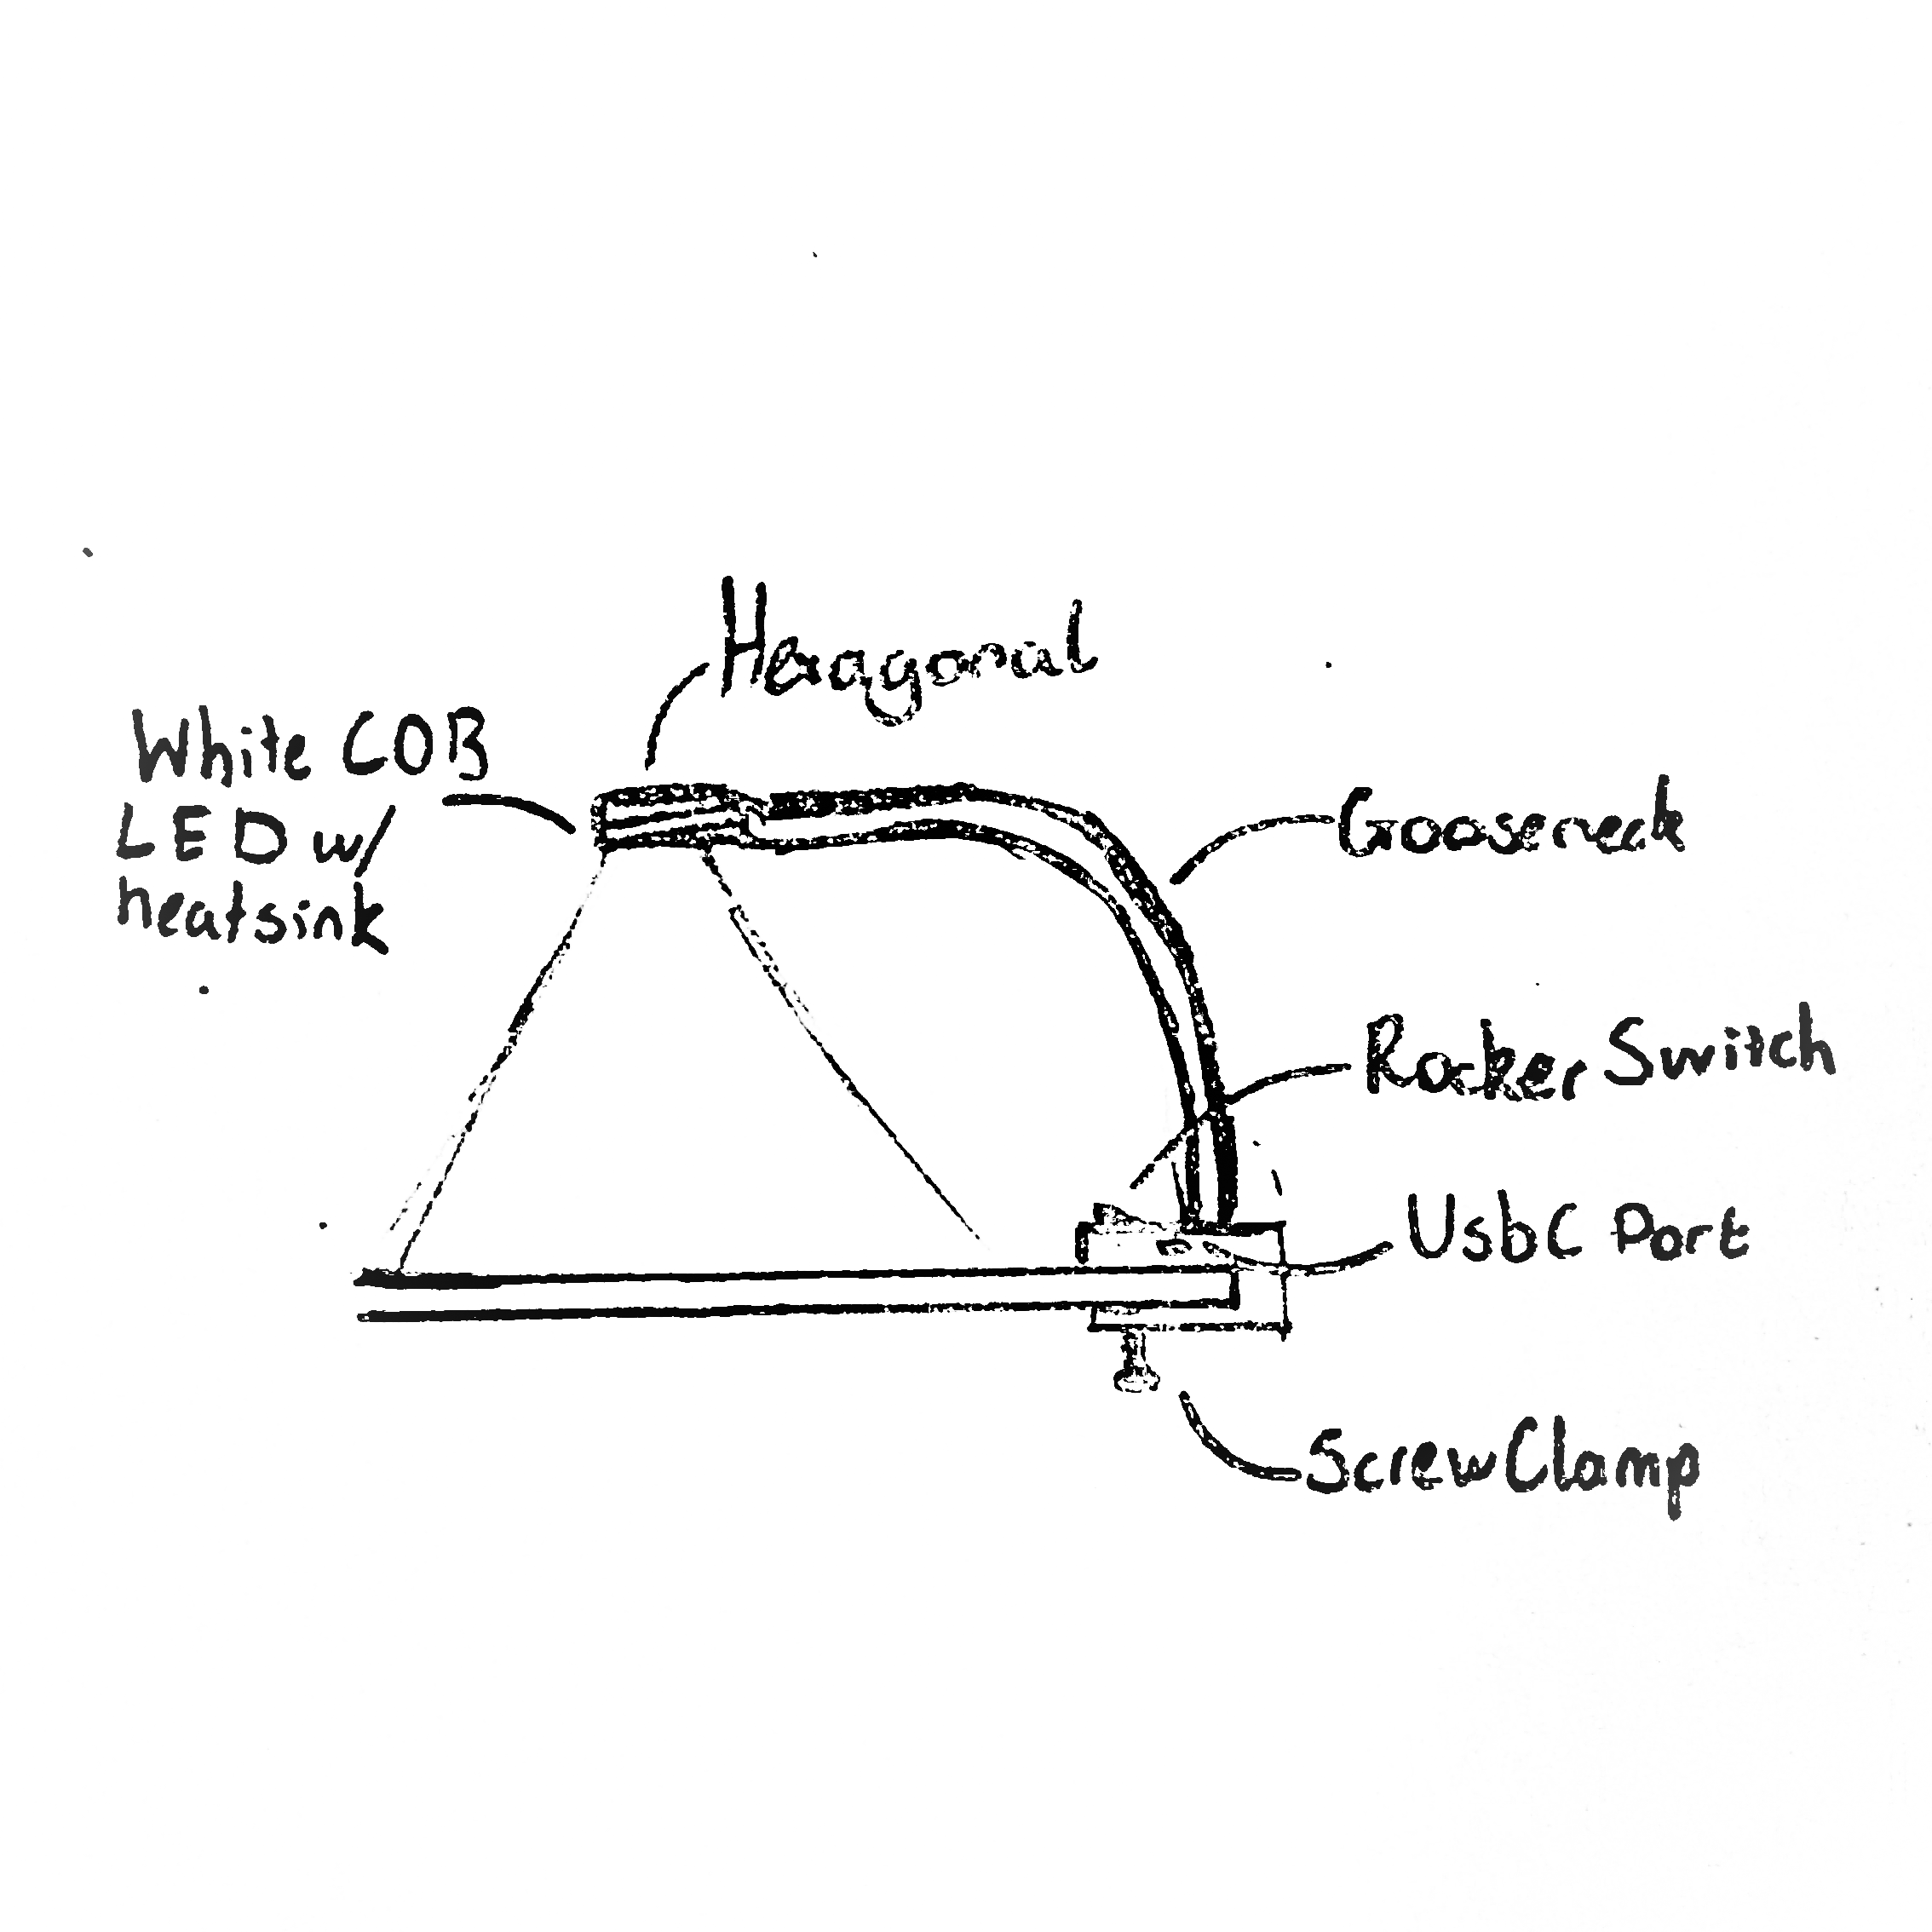 Hexagonal
White COB
LED w/
heatsink
Gooseneck
Rocker Switch
UsbC Port
Screw Clamp